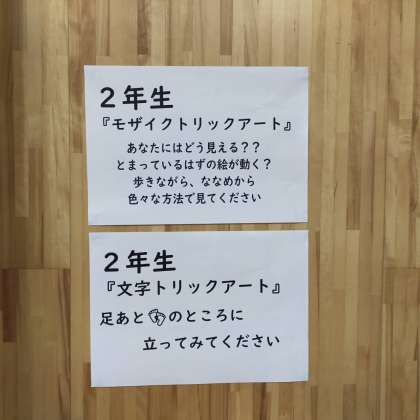 ２年生
『モザイクトリックアート』
あなたにはどう見える？？
とまっているはずの絵が動く？
歩きながら、ななめから
色々な方法で見てください
２年生
『文字トリックアート』
足あと👣のところに
立ってみてください